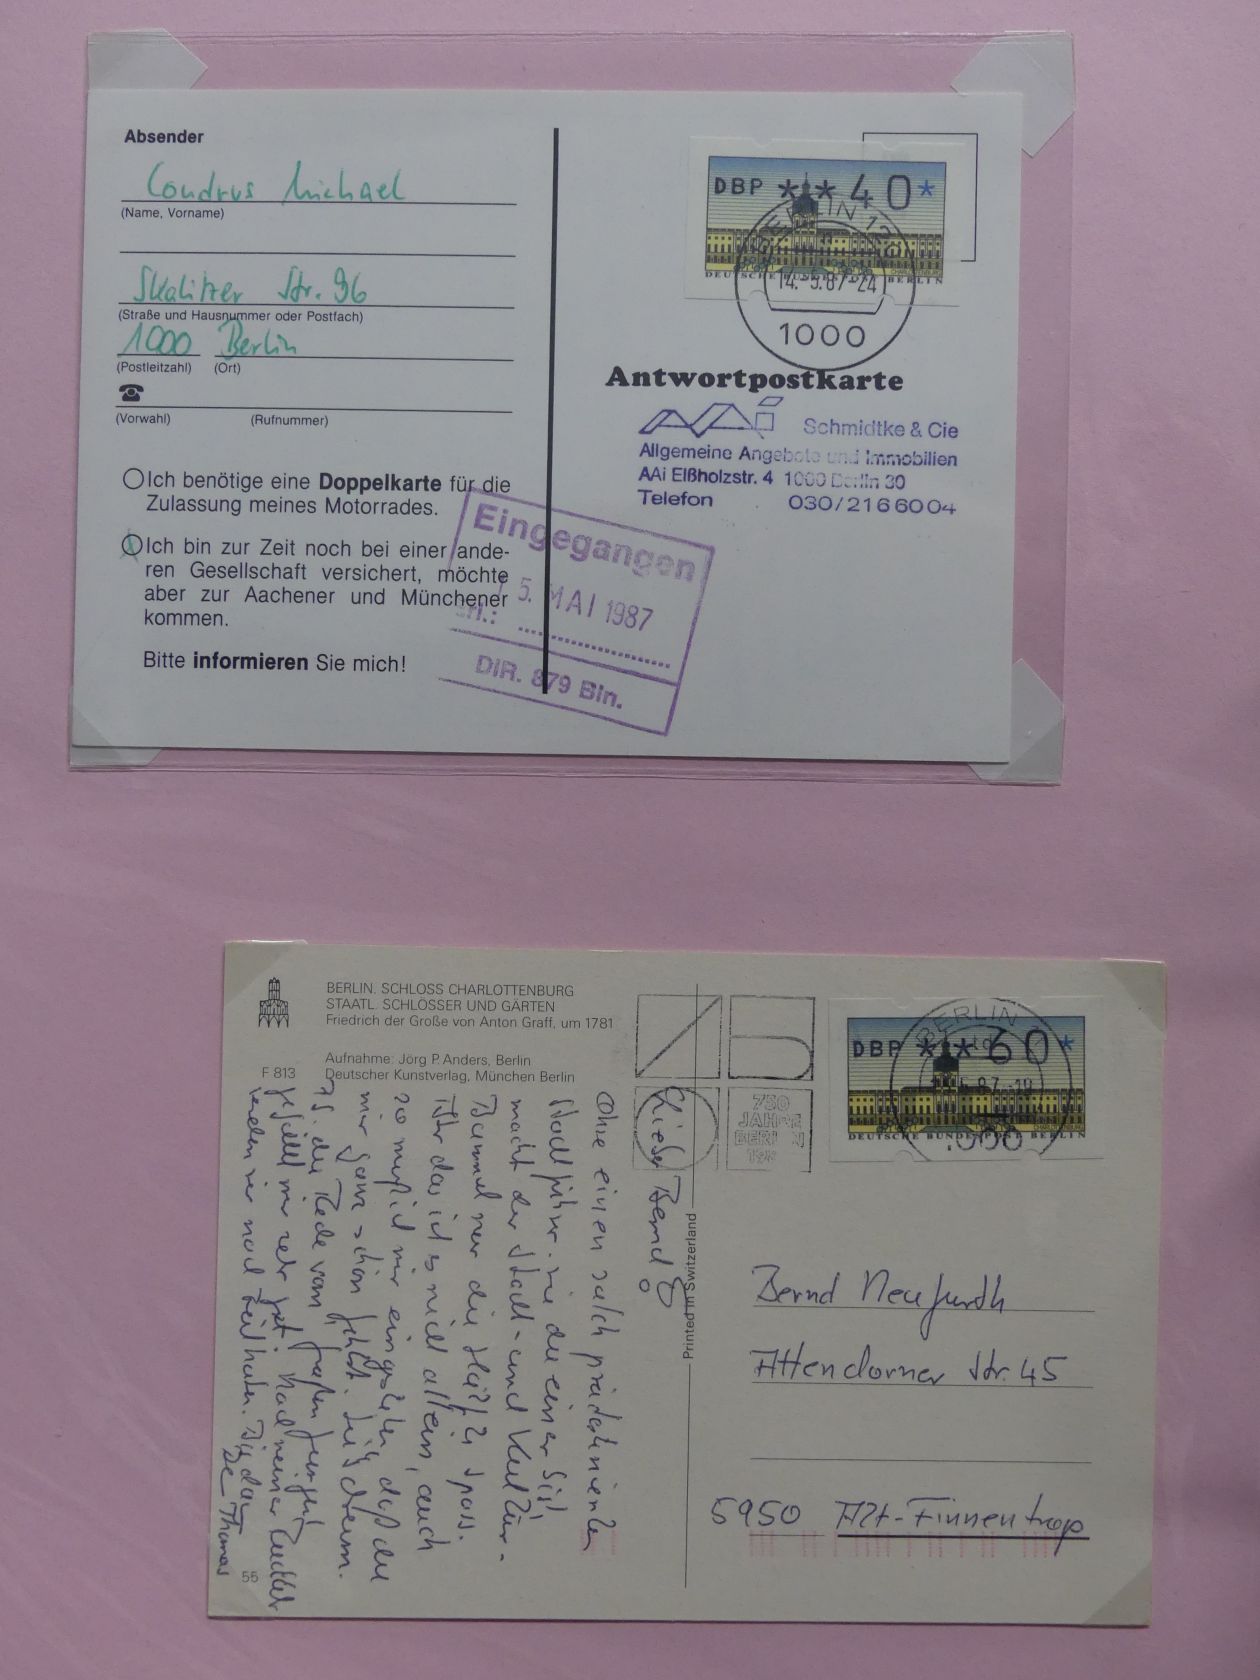 Absender
Condrus Michael
(Name, Vorname)
Skalitzer Str. 96
(Straße und Hausnummer oder Postfach)
1000 Berlin
(Postleitzahl) (Ort)
(Vorwahl) (Rufnummer)
Ich benötige eine Doppelkarte für die
Zulassung meines Motorrades.
Ich bin zur Zeit noch bei einer ande-
ren Gesellschaft versichert, möchte
aber zur Aachener und Münchener
kommen.
Bitte informieren Sie mich!
DBP ***40*
DEUTSCHE BUNDESPOST BERLIN
BERLIN 12
14.-5.87-24
1000
Antwortpostkarte
AAi Schmidtke & Cie
Allgemeine Angebote und Immobilien
AAi Elßholzstr. 4 1000 Berlin 30
Telefon 030/216 60 04
Eingegangen
15. MAI 1987
Erl.:
DIR. 879 Bln.
BERLIN. SCHLOSS CHARLOTTENBURG
STAATL. SCHLÖSSER UND GÄRTEN
Friedrich der Große von Anton Graff, um 1781
Aufnahme: Jörg P. Anders, Berlin
F 813 Deutscher Kunstverlag, München Berlin
750
JAHRE
BERLIN
DBP ***60*
DEUTSCHE BUNDESPOST BERLIN
BERLIN
Lieber Bernd
Ohne einen solch prädestinierten
Stadtführer, wie du einer bist
macht der Stadt- und Kultur-
Bummel nur die Hälfte Spass.
Wär das ich's nicht allein, auch
so muß ich mir eingestehen, daß du
mir ganz schön fehlst.
die Rede vom großen
gefällt mir sehr gut. Nach meiner
werden wir noch
De Thomas
55
Printed in Switzerland
Bernd Neufurth
Attendorner Str. 45
5950 Alt-Finnentrop